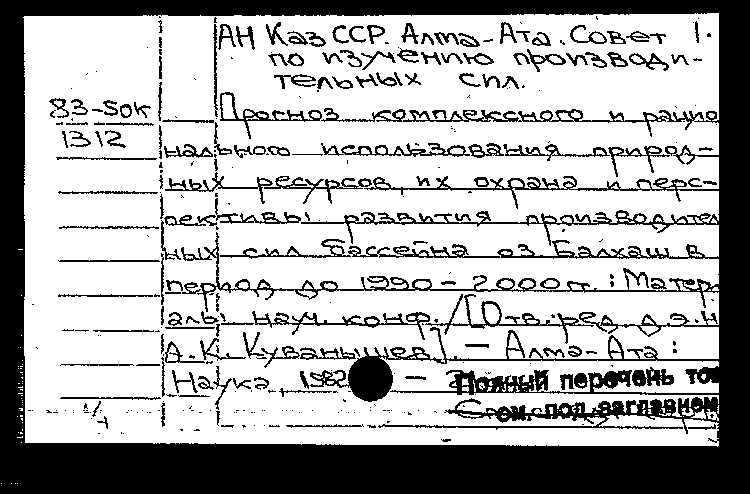 АН Каз ССР. Алма-Ата. Совет 1.
по изучению производи-
тельных сил.
83-50к Прогноз комплексного и рацио
1312 нального использования природ-
ных ресурсов, их охрана и перс-
пективы развития производител
ных сил бассейна оз. Балхаш в
период до 1990-2000 гг. : Матер
алы науч. конф. / [Отв. ред. д.э.н
А.К. Куванышев]. — Алма-Ата :
Наука, 1982 — Полный перечень том
см. под заглавием